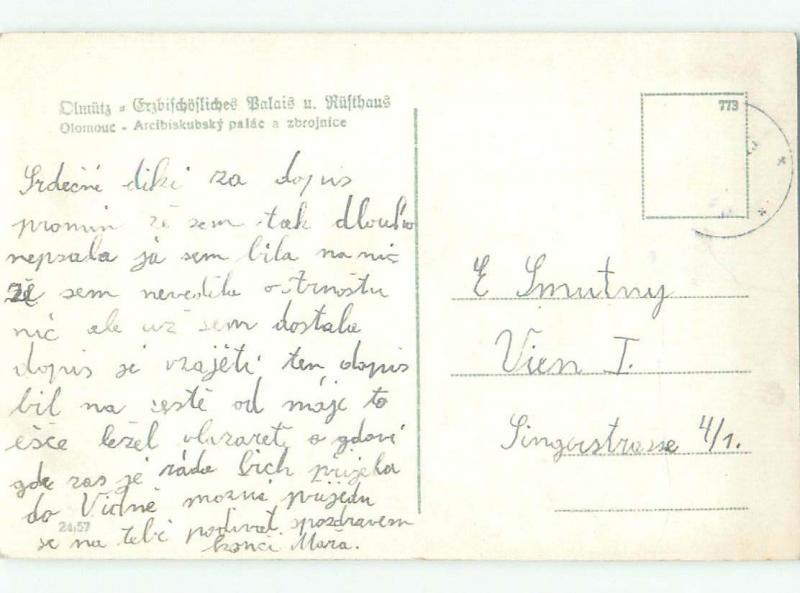 Olmütz - Erzbischöfliches Palais u. Rüsthaus
Olomouc - Arcibiskubský palác a zbrojnice
773
Srdečné diki za dopis
promin že sem tak dlouho
nepsala já sem bila na nic
že sem nevedila o Arnoštu
nic ale už sem dostala
dopis je vzajěti ten dopis
bil na cestě od máje to
ešče ležel vlazaretu a gdoví
gde zas je ráda bich přijela
do Vidně možná přijedu
24;57
se na tebe podivat spozdravem
konci Mařa.
E Smutny
Vien I.
Singerstrasse 4/1.